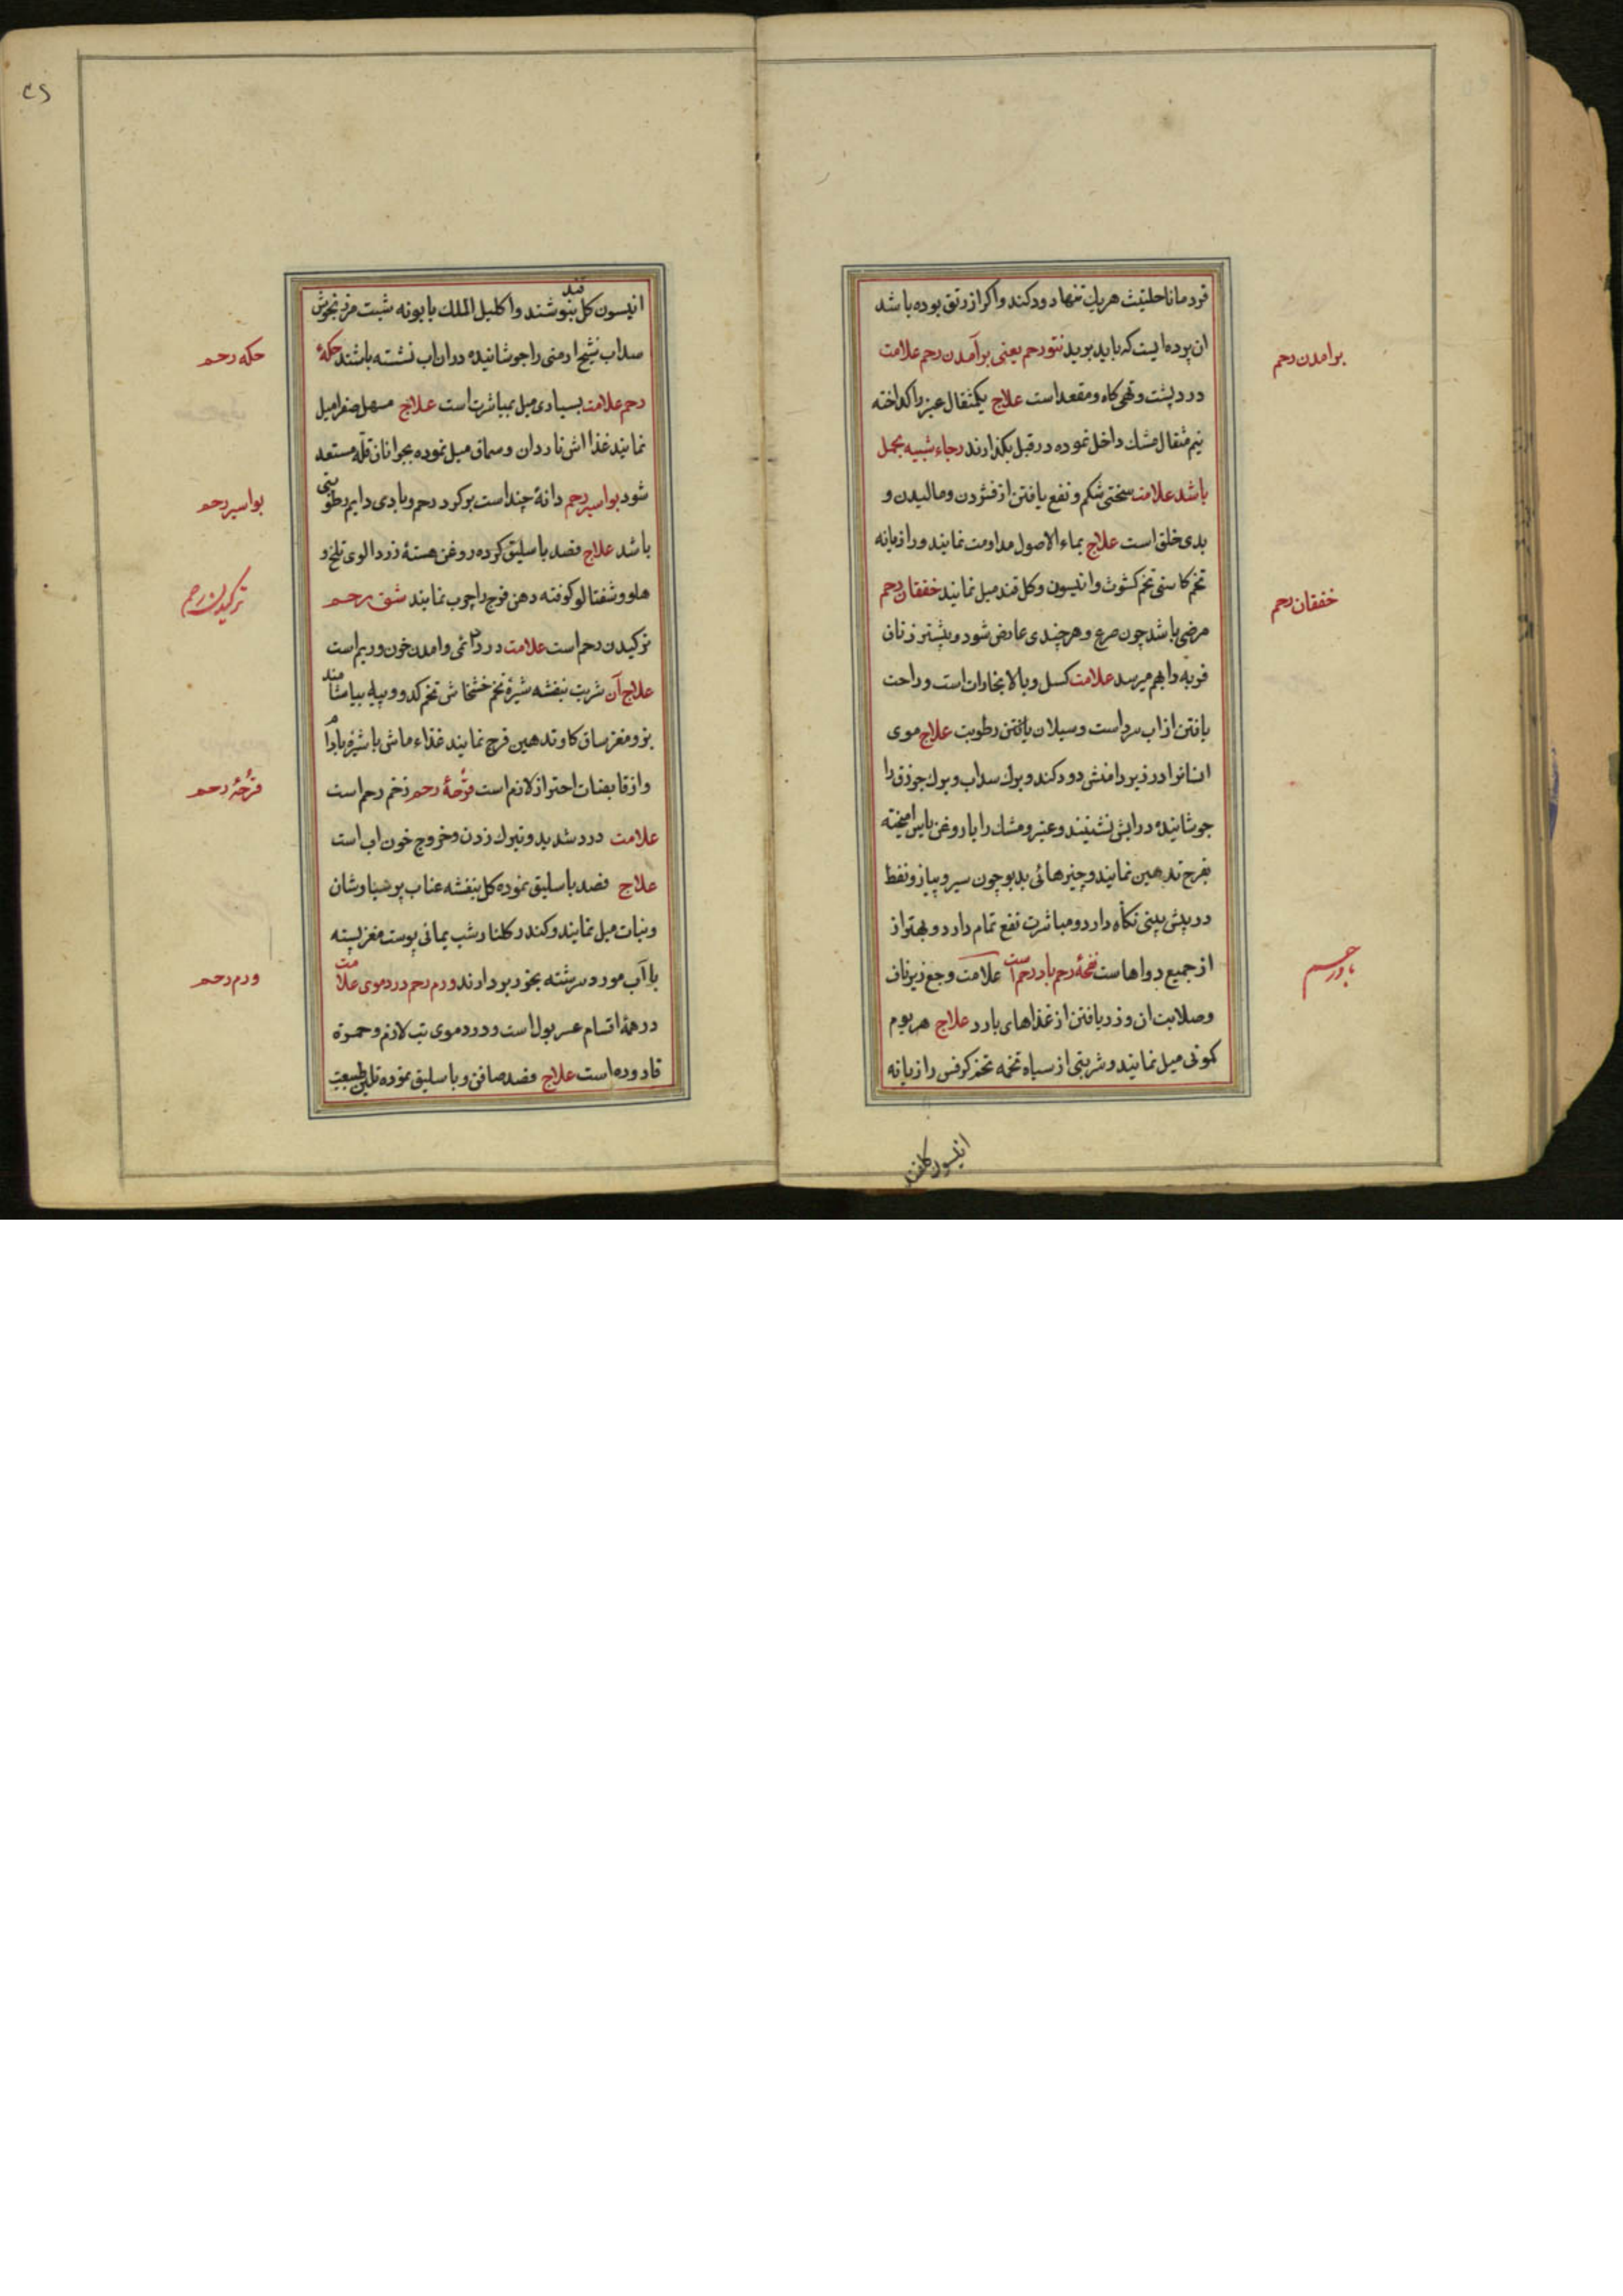 قردمانا حلتیث هریك تنها دود کند واکر از رتق بوده باشد
ان پرده ایست که باید برید نتو رحم یعنی برآمدن رحم علامت
برامدن رحم
درد پشت و تهی کاه ومقعد است علاج یکمثقال عنبر را کداخته
نیم مثقال مشك داخل نموده در قبل بکذارند رجاء شبیه بحمل
باشد علامت سختی شکم ونفع یافتن از فشردن ومالیدن و
بدی خلق است علاج بماء الاصول مداومت نمایند ورازیانه
تخم کاسنی تخم کشوث وانیسون وکل قند میل نمایند خفقان رحم
خفقان رحم
مرضی باشد چون صرع وهر چندی عارض شود و بیشتر زنان
فربه را بهم میرسد علامت کسل وبالا بخارات است وراحت
یافتن از اب سرد است وسیلان یافتن رطوبت علاج موی
انسانرا در زیر دامنش دود کند وبرك سداب وبرك جوزق را
جوشانیده در ابش نشینند وعنبر ومشك را با روغن یاس امیخته
بفرج تدهین نمایند وچیزهائی بدبو چون سیر وپیاز ونفط
در پیش بینی نکاه دارد ومباشرت نفع تمام دارد وبهتر از
از جمیع دواهاست نفخهٔ رحم باد رحم است علامت وجع زیر ناف
باد رحم
وصلابت ان وزدیافتن از غذاهای بارد علاج هر یوم
کمونی میل نمایند وشربتی از سیاه تخمه تخم کرفس رازیانه
انیسون کلقند
انیسون کل قند بنوشند واکلیل الملك بابونه شبت مرزنجوش
سداب شیح ارمنی را جوشانیده در ان اب نشسته باشند حکهٔ
حکه رحم
رحم علامت بسیاری میل بمباشرت است علاج مسهل صفرا میل
نمایند غذا اش ناردان وسماق میل نموده بجوانان قله مستعد
شود بواسیر رحم دانهٔ چند است بر کرد رحم وبادی دایم رطوبتی
بواسیر رحم
باشد علاج فصد باسلیق کرده روغن هستهٔ زردالوی تلخ و
هلو وشفتالو کوفته دهن فرج را چرب نمایند شق رحم
ترکیدن رحم
ترکیدن رحم است علامت درد دائمی وامدن خون وریم است
علاج آن شربت بنفشه شیرهٔ تخم خشخاش تخم کدو وپیله بیاشامند
بز ومغز ساق کاو تدهین فرج نمایند غذاء ماش با شیره بادام
واز قابضات احتراز لازم است قرحهٔ رحم زخم رحم است
قرحهٔ رحم
علامت درد شدید وتیرك زدن وخروج خون اب است
علاج فصد باسلیق نموده کل بنفشه عناب پرسیاوشان
ونبات میل نمایند وکندر کلنار شب یمانی پوست مغز پسته
با آب مورد سرشته بخود بردارند ورم رحم در دموی علامت
ورم رحم
در همهٔ اقسام عسر بول است ودر دموی تب لازم وحمرة
قاروره است علاج فصد صافن وباسلیق نموده تلیین طبیعت